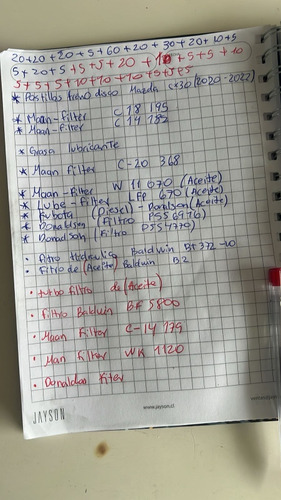 20+20+20+5+60+20+30+20+10+5
5+20+5+5+5+20+10+5+5+10
5+5+5+10+10+10+5+5+5
* Pastillas freno disco Mazda cx30 (2020-2022)
* Maan-Filter C 18 195
* Maan-Filter C 14 182
* Grasa lubricante
* Maan Filter C-20 368
* Maan-Filter W 11 070 (Aceite)
* Lube-filter LFP 670 (Aceite)
* Kubota (Diesel) - Donalson (Aceite)
* Donaldson (Filtro P556976)
* Donadson (Filtro P554770)
• Fitro Hidraulico Baldwin BT 372-10
• Filtro de (Aceite) Baldwin B2
• turbo filtro de (Aceite)
• filtro Baldwin BF 5800
• Maan Filter C-14 179
• Man Filter WK 1120
• Donaldas Fiter
JAYSON
www.jayson.cl